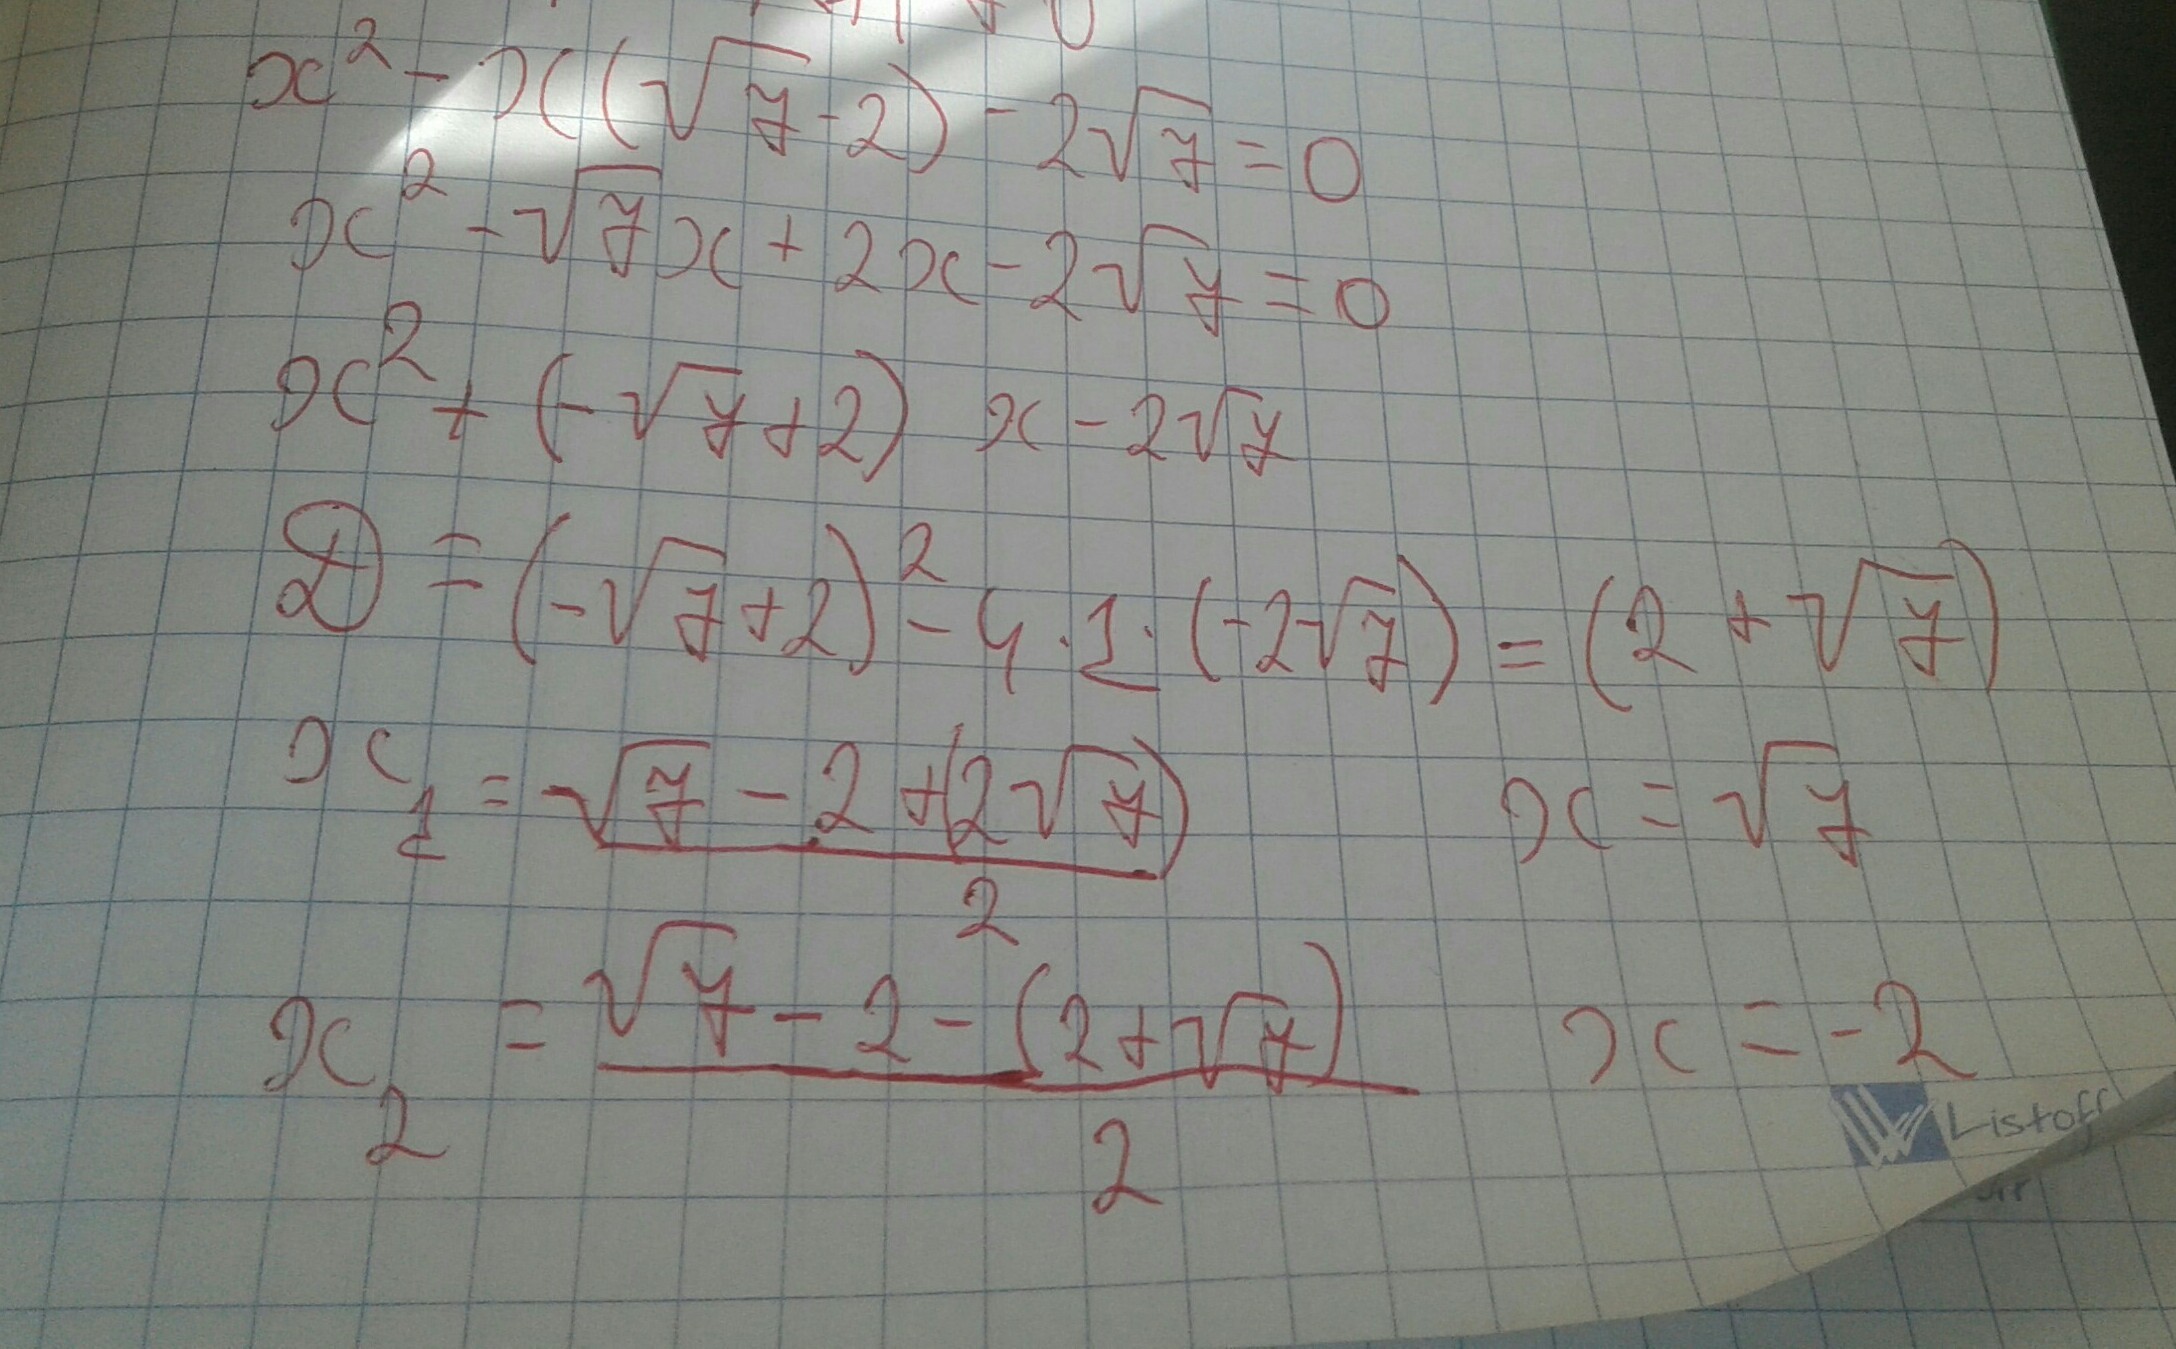 x² - x(√7 - 2) - 2√7 = 0
x² - √7x + 2x - 2√7 = 0
x² + (-√7 + 2) x - 2√7
D = (-√7 + 2)² - 4 · 1 · (-2√7) = (2 + √7)
x₁ = (√7 - 2 + (2√7)) / 2 x = √7
x₂ = (√7 - 2 - (2 + √7)) / 2 x = -2
Listoff